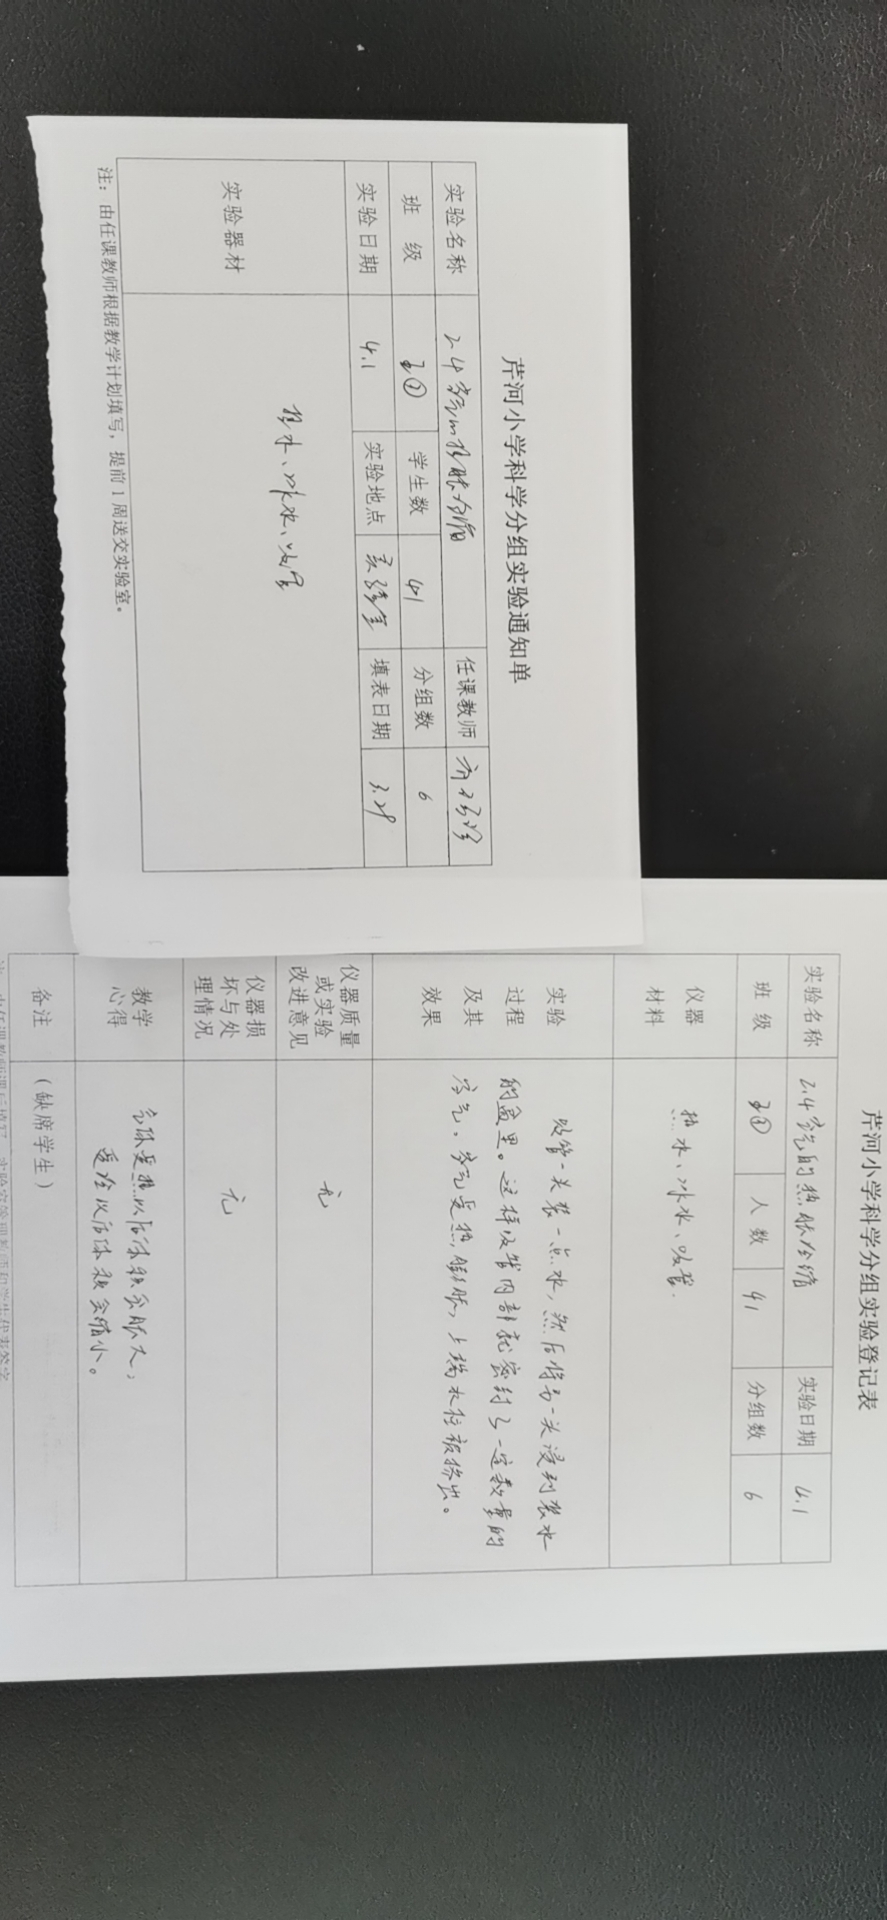 芹河小学科学分组实验通知单
实验名称 2.4空气的热胀冷缩 任课教师
班 级 3① 学生数 41 分组数 6
实验日期 4.1 实验地点 实验室 填表日期 3.29
实验器材 热水、冰水、吸管
注：由任课教师根据教学计划填写，提前1周送交实验室。
芹河小学科学分组实验登记表
实验名称 2.4空气的热胀冷缩 实验日期 4.1
班 级 3① 人 数 41 分组数 6
仪器
材料
热水、冰水、吸管.
实验
过程
及其
效果
吸管一头装一点水，然后将另一头浸到装水
的盒里。这样吸管内部就密封了一定数量的
空气，空气受热，膨胀，上端水柱被挤出。
仪器质量
或实验
改进意见
无
仪器损
坏与处
理情况
无
教学
心得
气体受热以后体积会胀大，
遇冷以后体积会缩小。
备注 （缺席学生）
注：由任课教师课后填写，实验室管理教师和学生代表签字